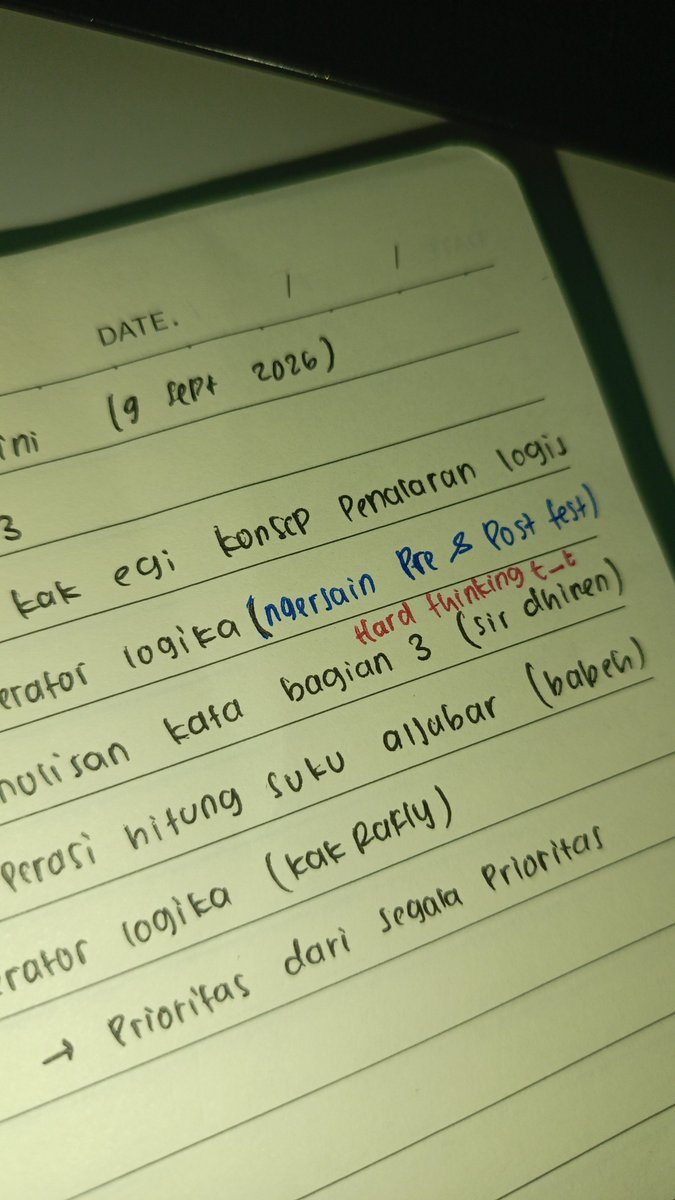 DATE. / /
ini (9 sept 2026)
3
kak egi konsep penalaran logis
erator logika (ngersain Pre & Post test)
Hard thinking t_t
nulisan kata bagian 3 (sir dhinen)
perasi hitung suku aljabar (babeh)
erator logika (kak Rafly)
→ Prioritas dari segala prioritas